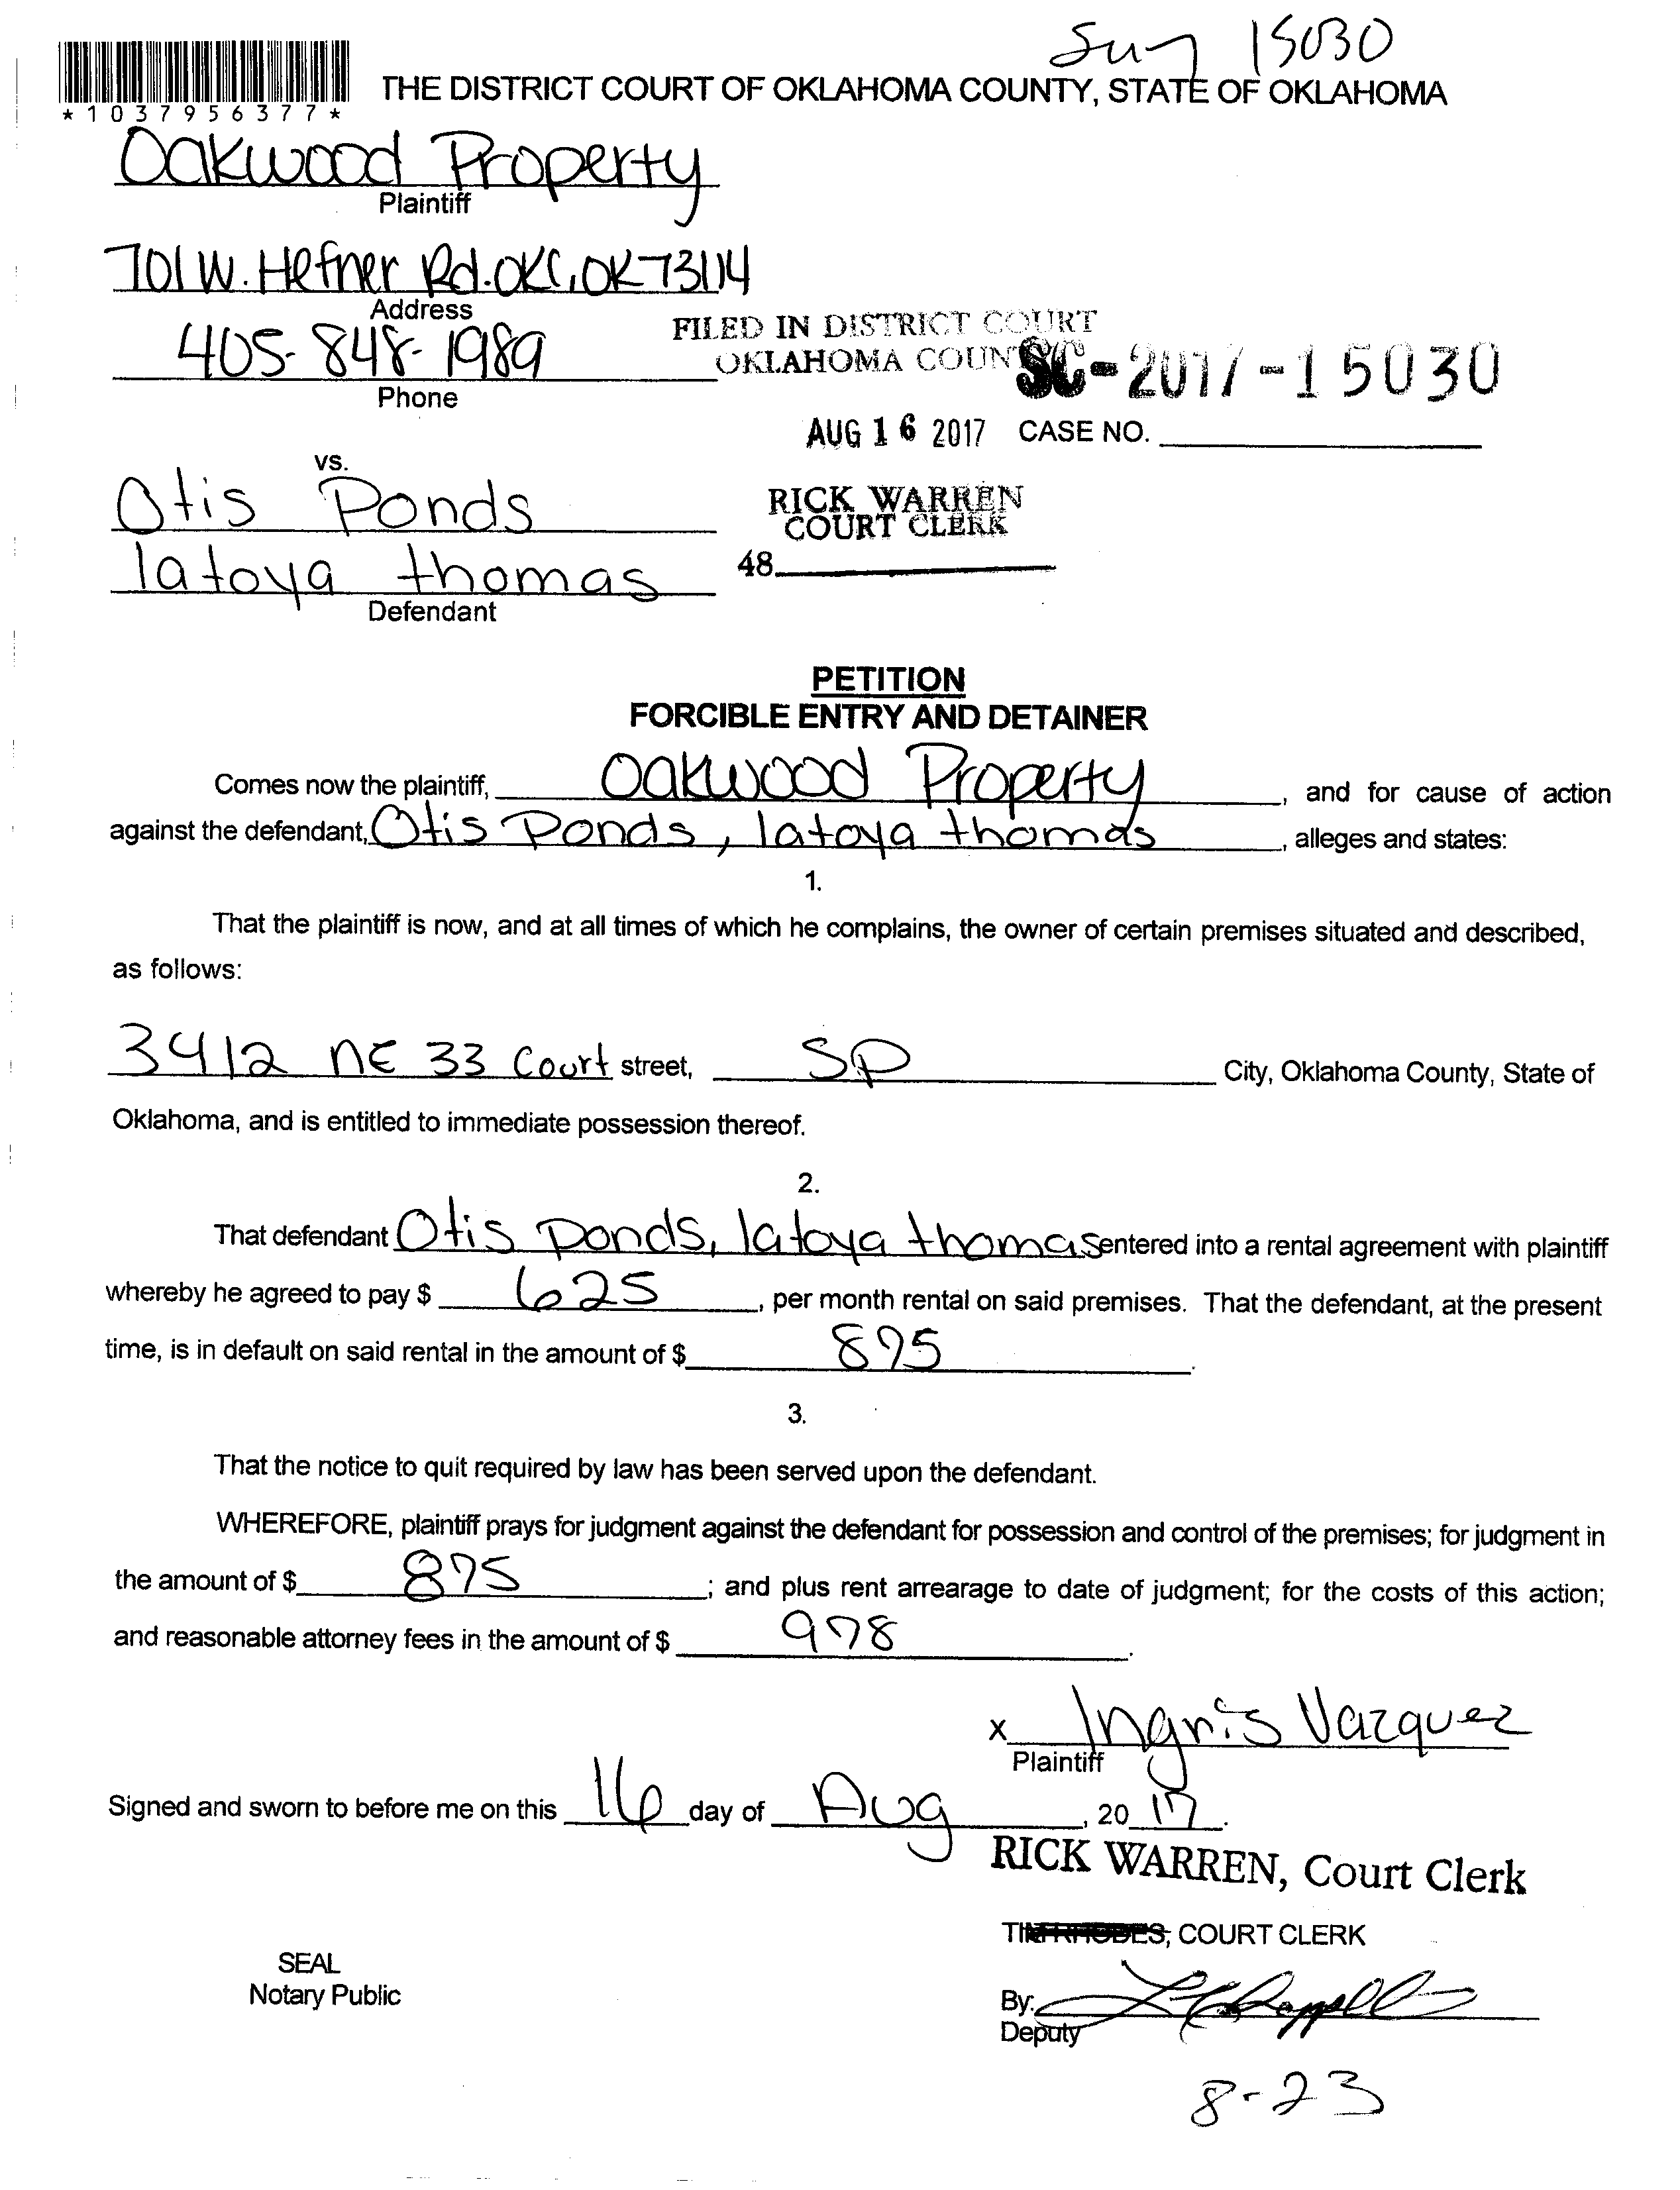 Suj 15030
*1037956377*
THE DISTRICT COURT OF OKLAHOMA COUNTY, STATE OF OKLAHOMA
Oakwood Property
Plaintiff
701 W. Hefner Rd. OKC, OK 73114
Address
405-848-1989
Phone
FILED IN DISTRICT COURT
OKLAHOMA COUN
SC-2017-15030
AUG 16 2017 CASE NO.
vs.
Otis Ponds
latoya thomas
Defendant
RICK WARREN
COURT CLERK
48
PETITION
FORCIBLE ENTRY AND DETAINER
Comes now the plaintiff, Oakwood Property, and for cause of action
against the defendant, Otis Ponds, latoya thomas, alleges and states:
1.
That the plaintiff is now, and at all times of which he complains, the owner of certain premises situated and described,
as follows:
3412 NE 33 Court street, SP City, Oklahoma County, State of
Oklahoma, and is entitled to immediate possession thereof.
2.
That defendant Otis Ponds, latoya thomas entered into a rental agreement with plaintiff
whereby he agreed to pay $ 625, per month rental on said premises. That the defendant, at the present
time, is in default on said rental in the amount of $ 895.
3.
That the notice to quit required by law has been served upon the defendant.
WHEREFORE, plaintiff prays for judgment against the defendant for possession and control of the premises; for judgment in
the amount of $ 895; and plus rent arrearage to date of judgment; for the costs of this action;
and reasonable attorney fees in the amount of $ 978.
x Ingris Vazquez
Plaintiff
Signed and sworn to before me on this 16 day of Aug, 2017.
RICK WARREN, Court Clerk
COURT CLERK
SEAL
Notary Public
By:
Deputy
8-23